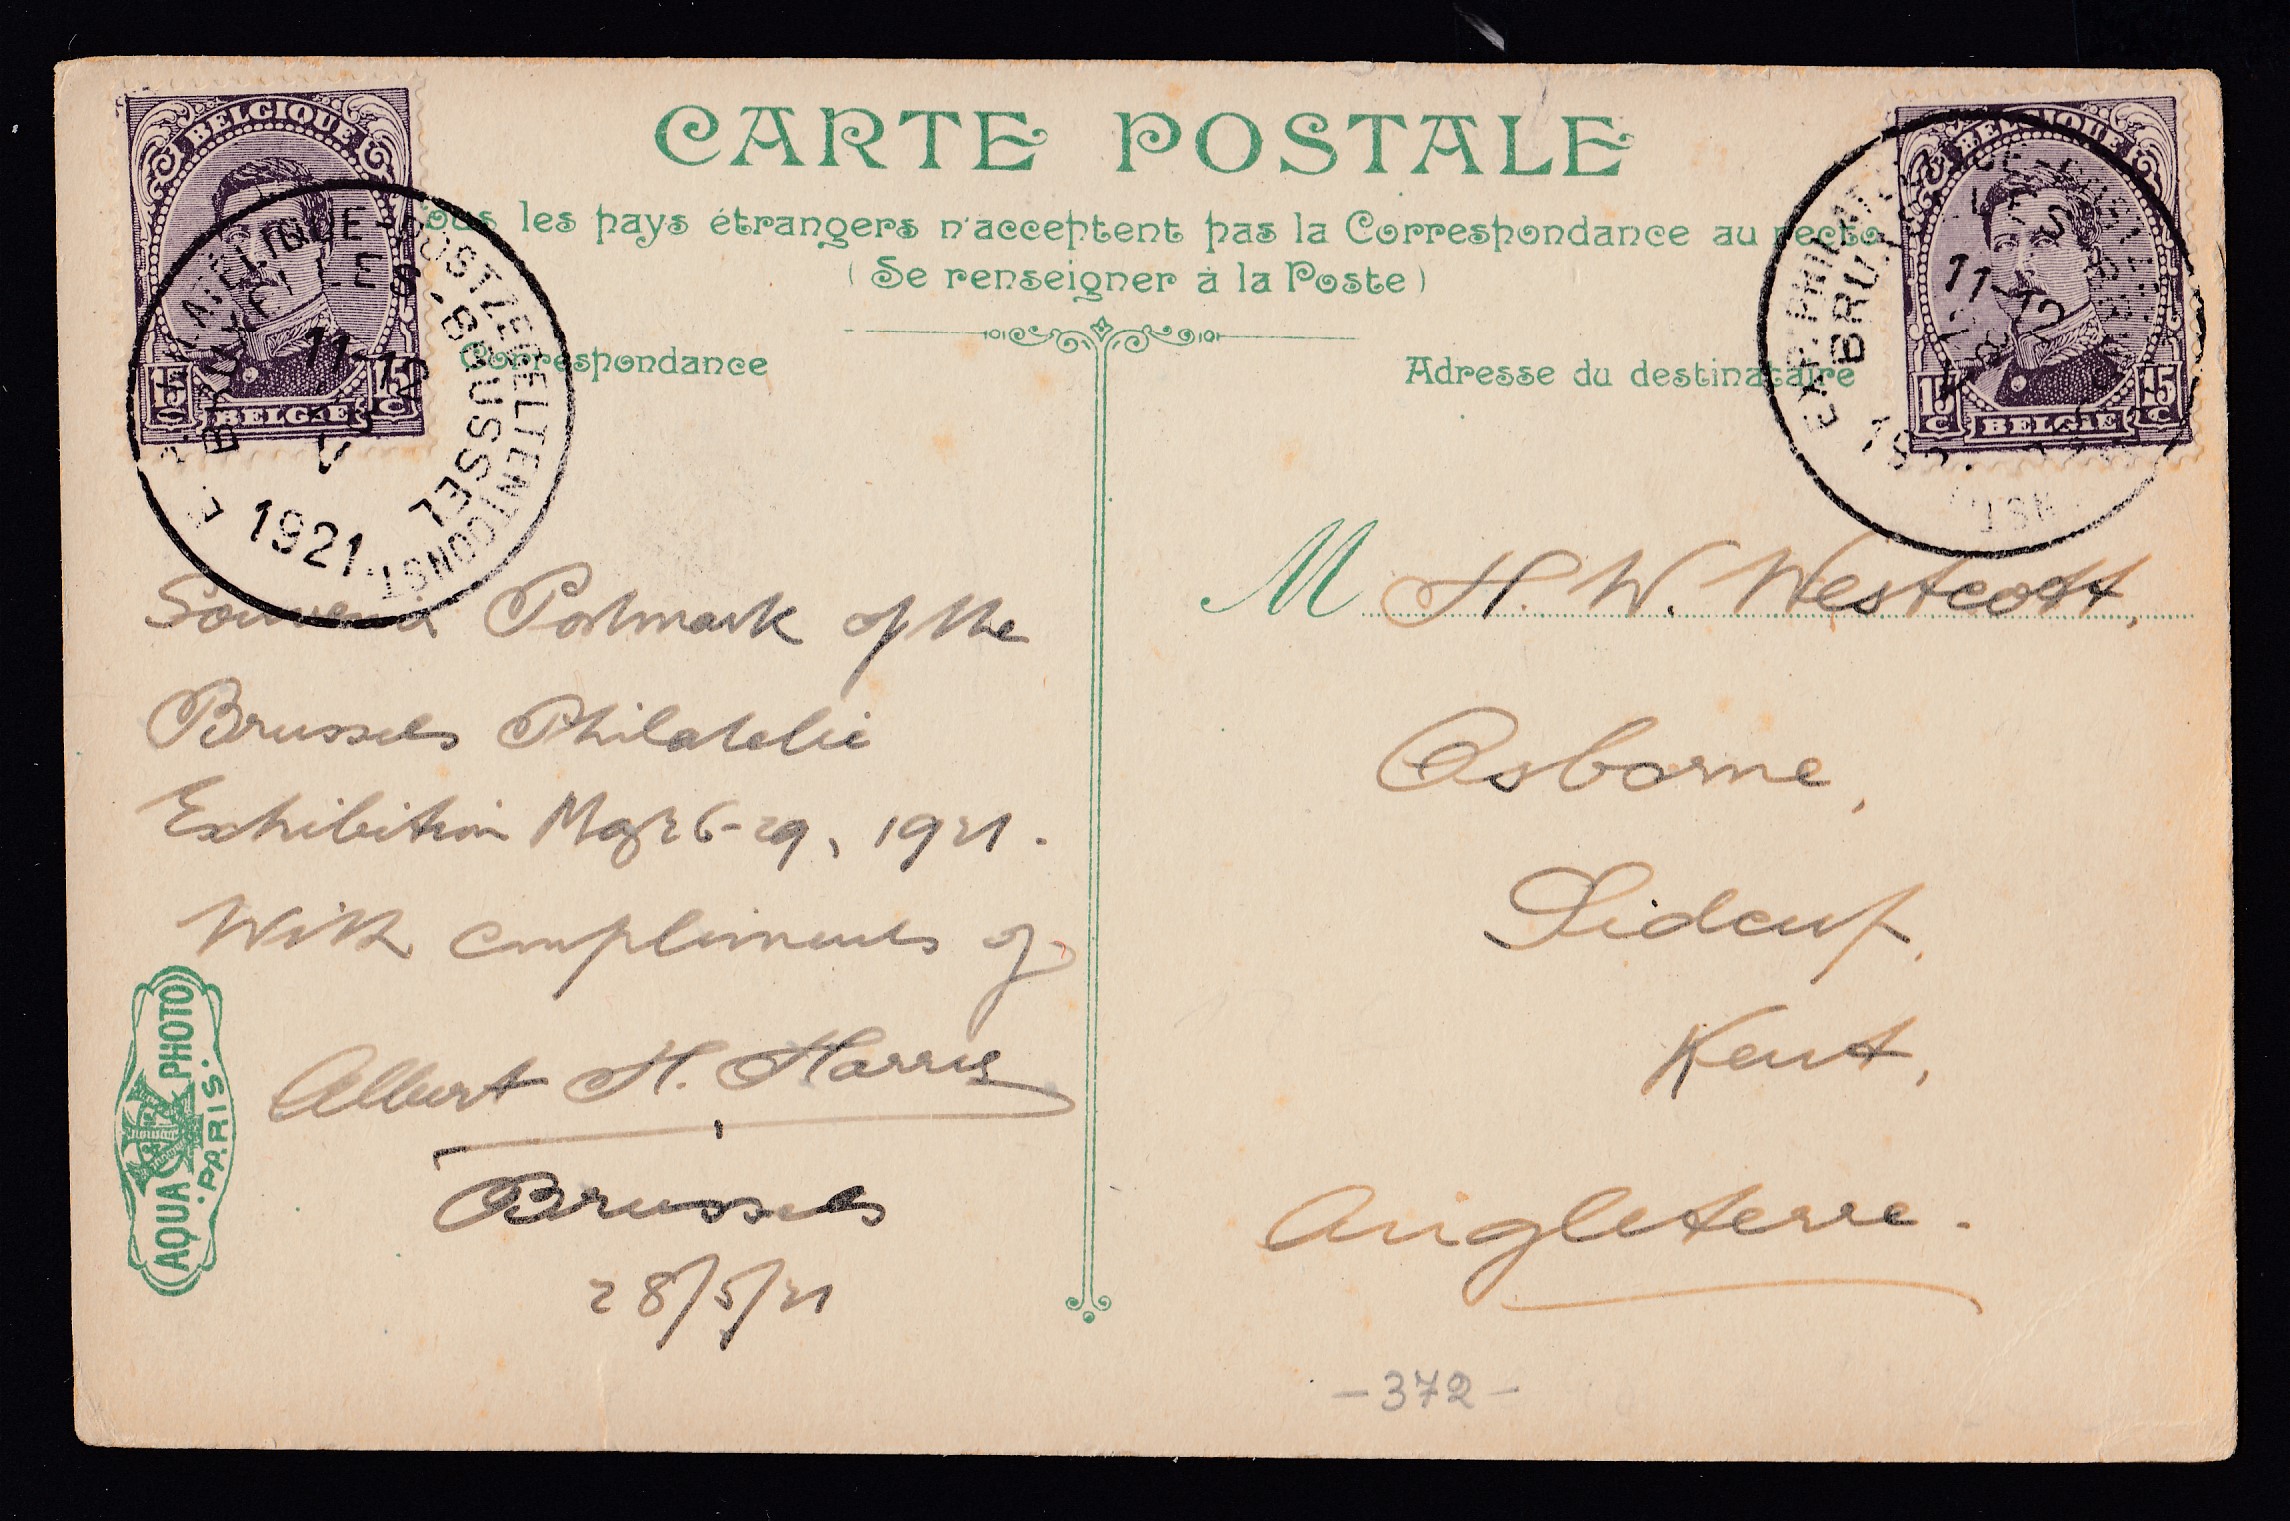 BELGIQUE
15 C 15 C
BELGIË
POSTZEGELTENTOONST.
BRUXELLES · BRUSSEL
11-12
V
1921
CARTE POSTALE
BELGIQUE
15 C 15 C
BELGIË
11-12
Tous les pays étrangers n'acceptent pas la Correspondance au recto
(Se renseigner à la Poste)
Correspondance
Souvenir Postmark of the
Brussels Philatelic
Exhibition May 26-29, 1921.
With compliments of
Albert H. Harris
Brussels
28/5/21
AQUA PHOTO
PARIS
Adresse du destinataire
M H. W. Westcott,
Osborne,
Sidcup,
Kent,
Angleterre.
-372-